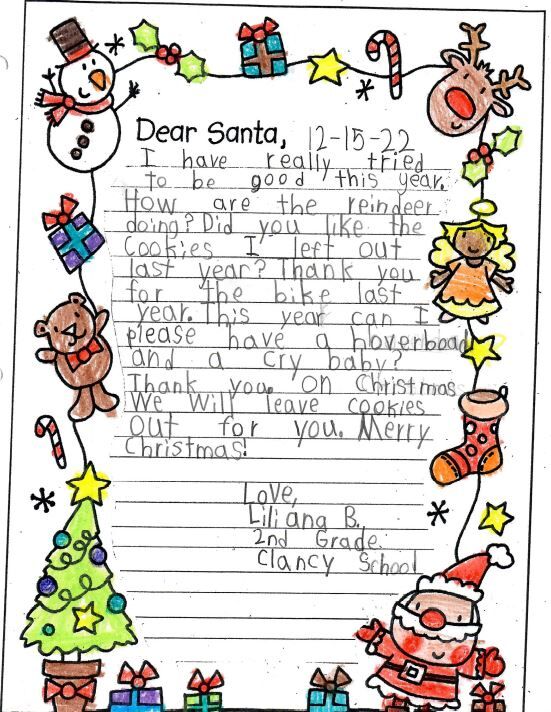 Dear Santa, 12-15-22
I have really tried
to be good this year.
How are the reindeer
doing? Did you like the
cookies I left out
last year? Thank you
for the bike last
year. This year can I
please have a hoverboad
and a cry baby?
Thank you. On Christmas
We Will leave cookies
out for you. Merry
Christmas!
Love,
Liliana B.
2nd Grade
Clancy School